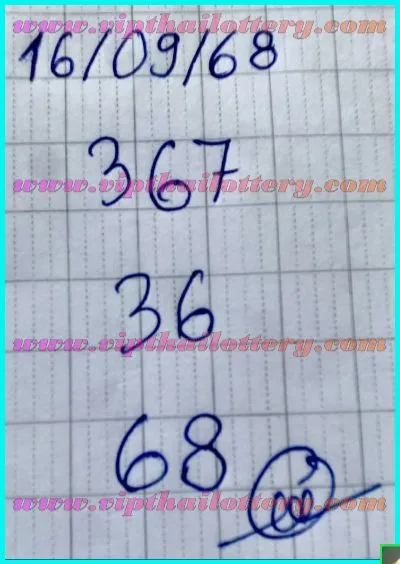 16/09/68
www.vipthailottery.com
367
www.vipthailottery.com
36
www.vipthailottery.com
68
www.vipthailottery.com